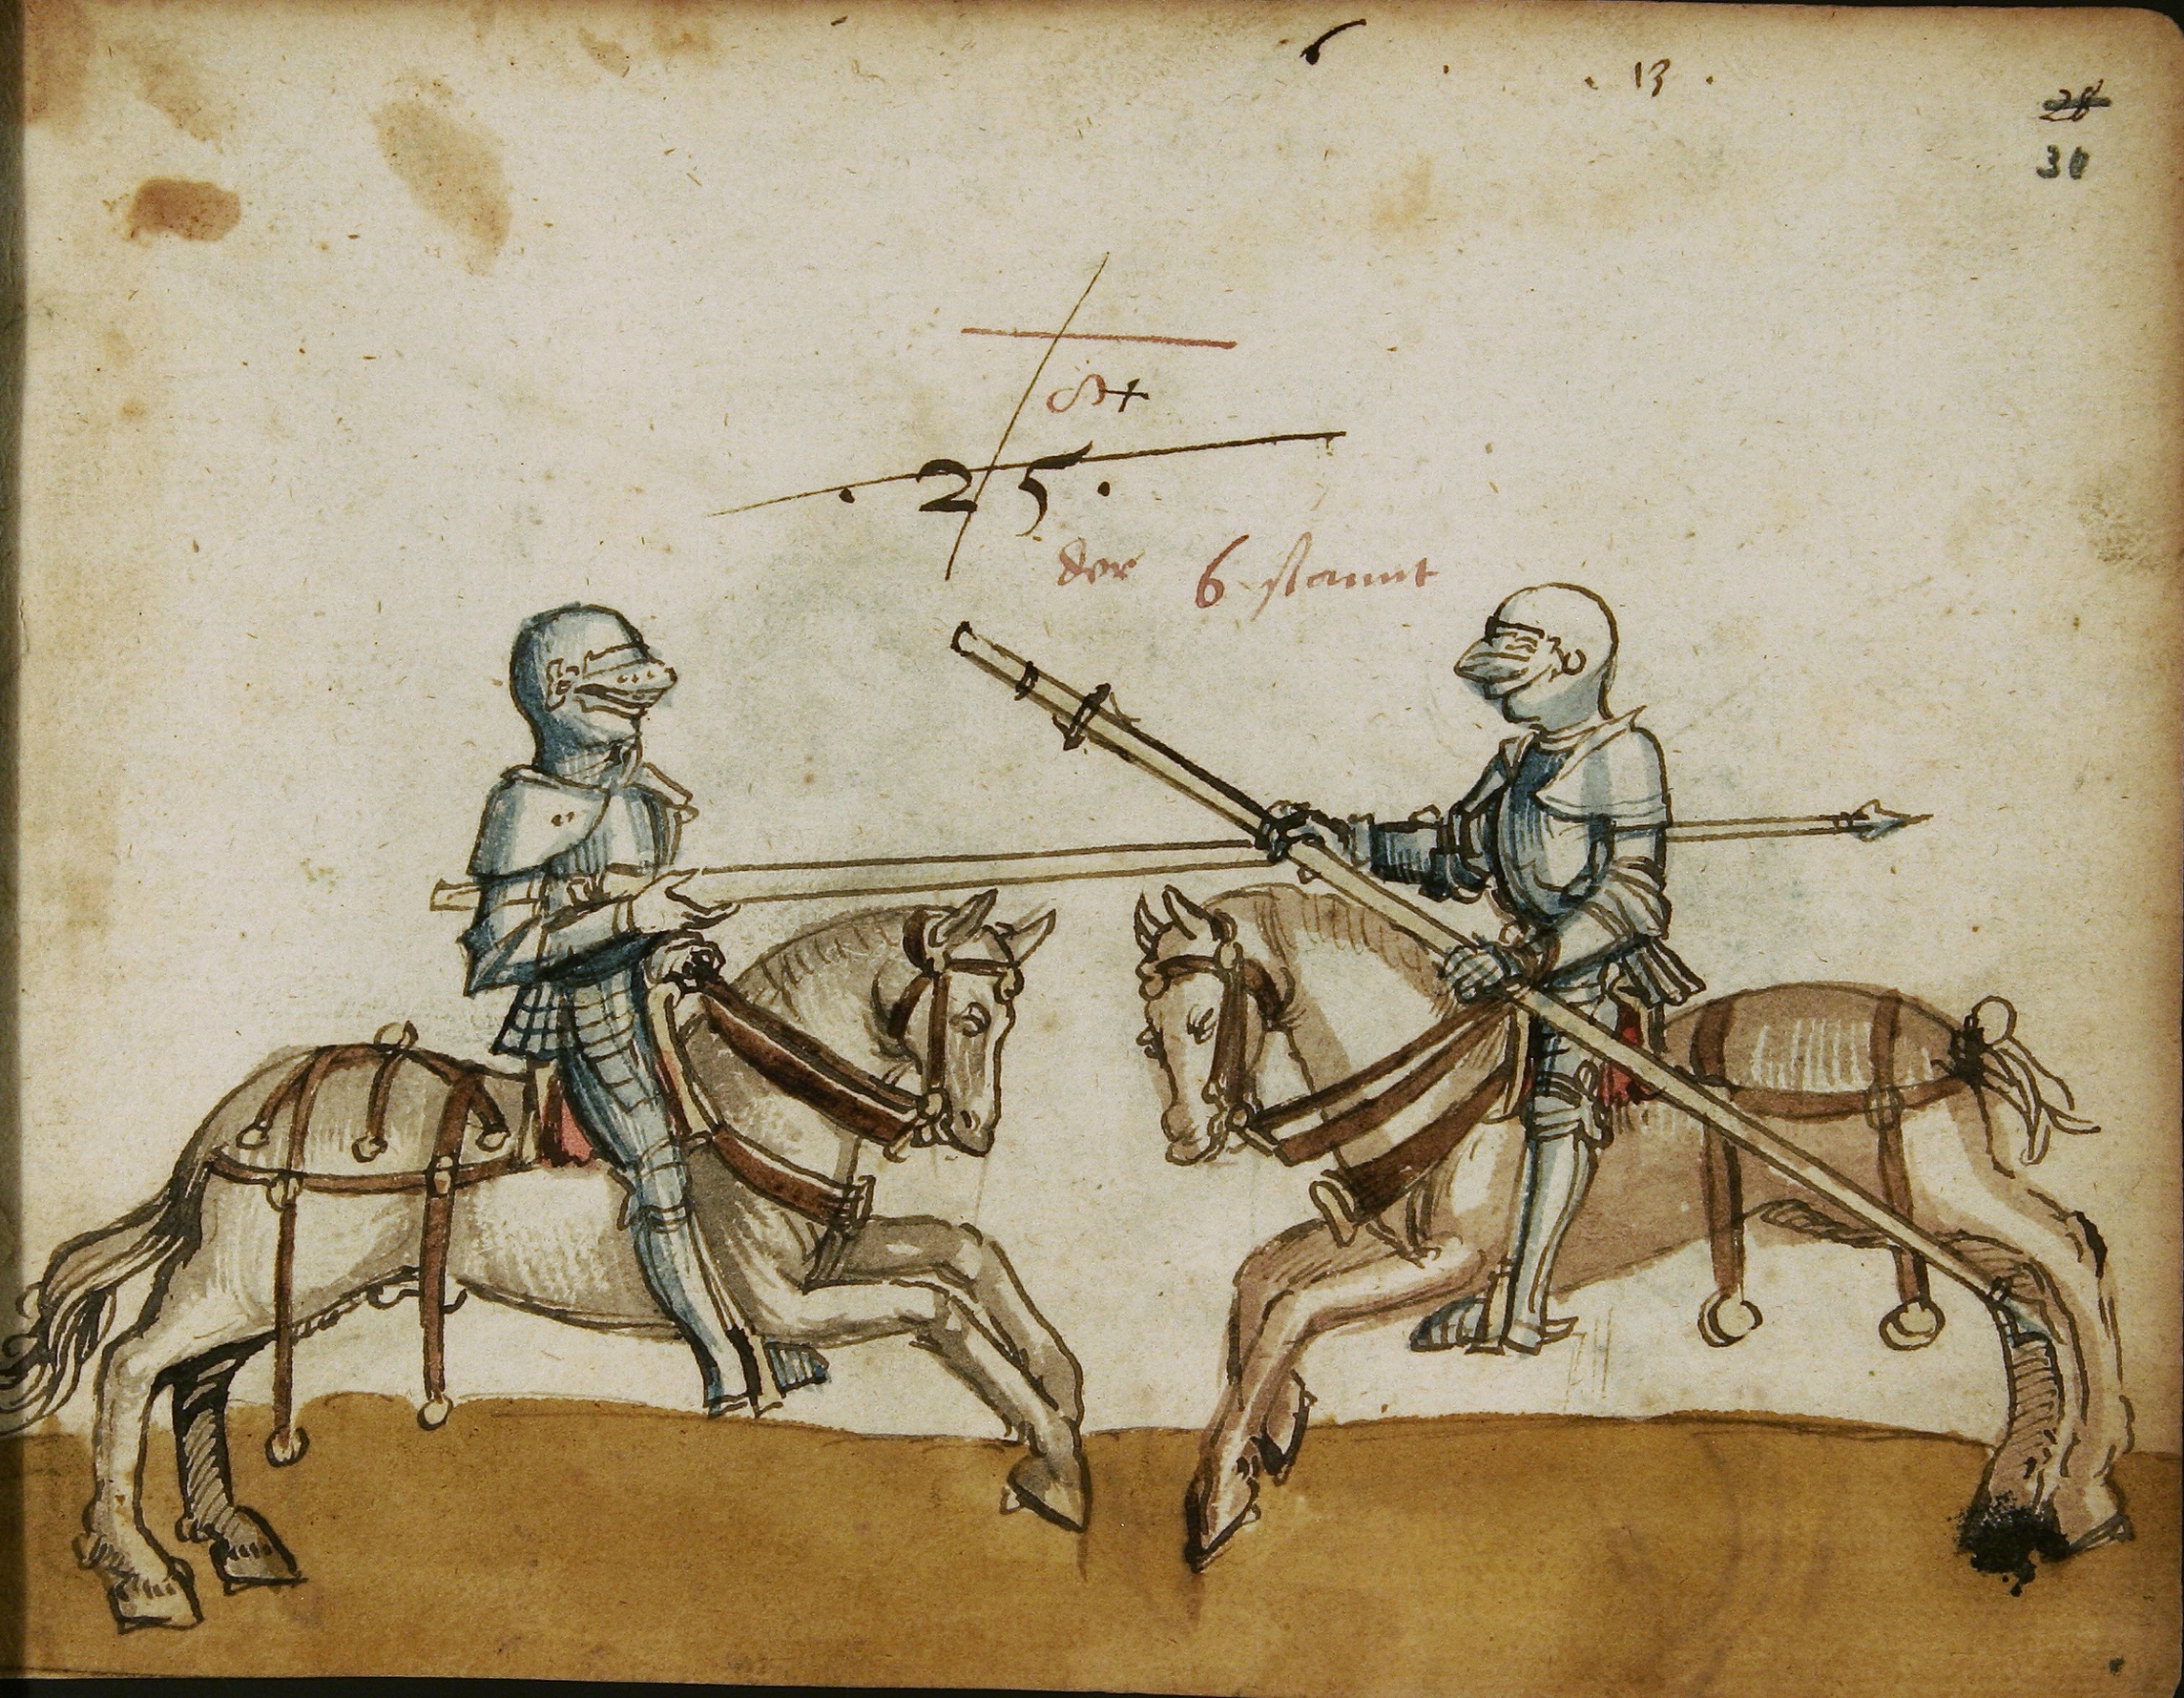 6
. 13 .
28
30
84
. 25 .
der 6 stannt